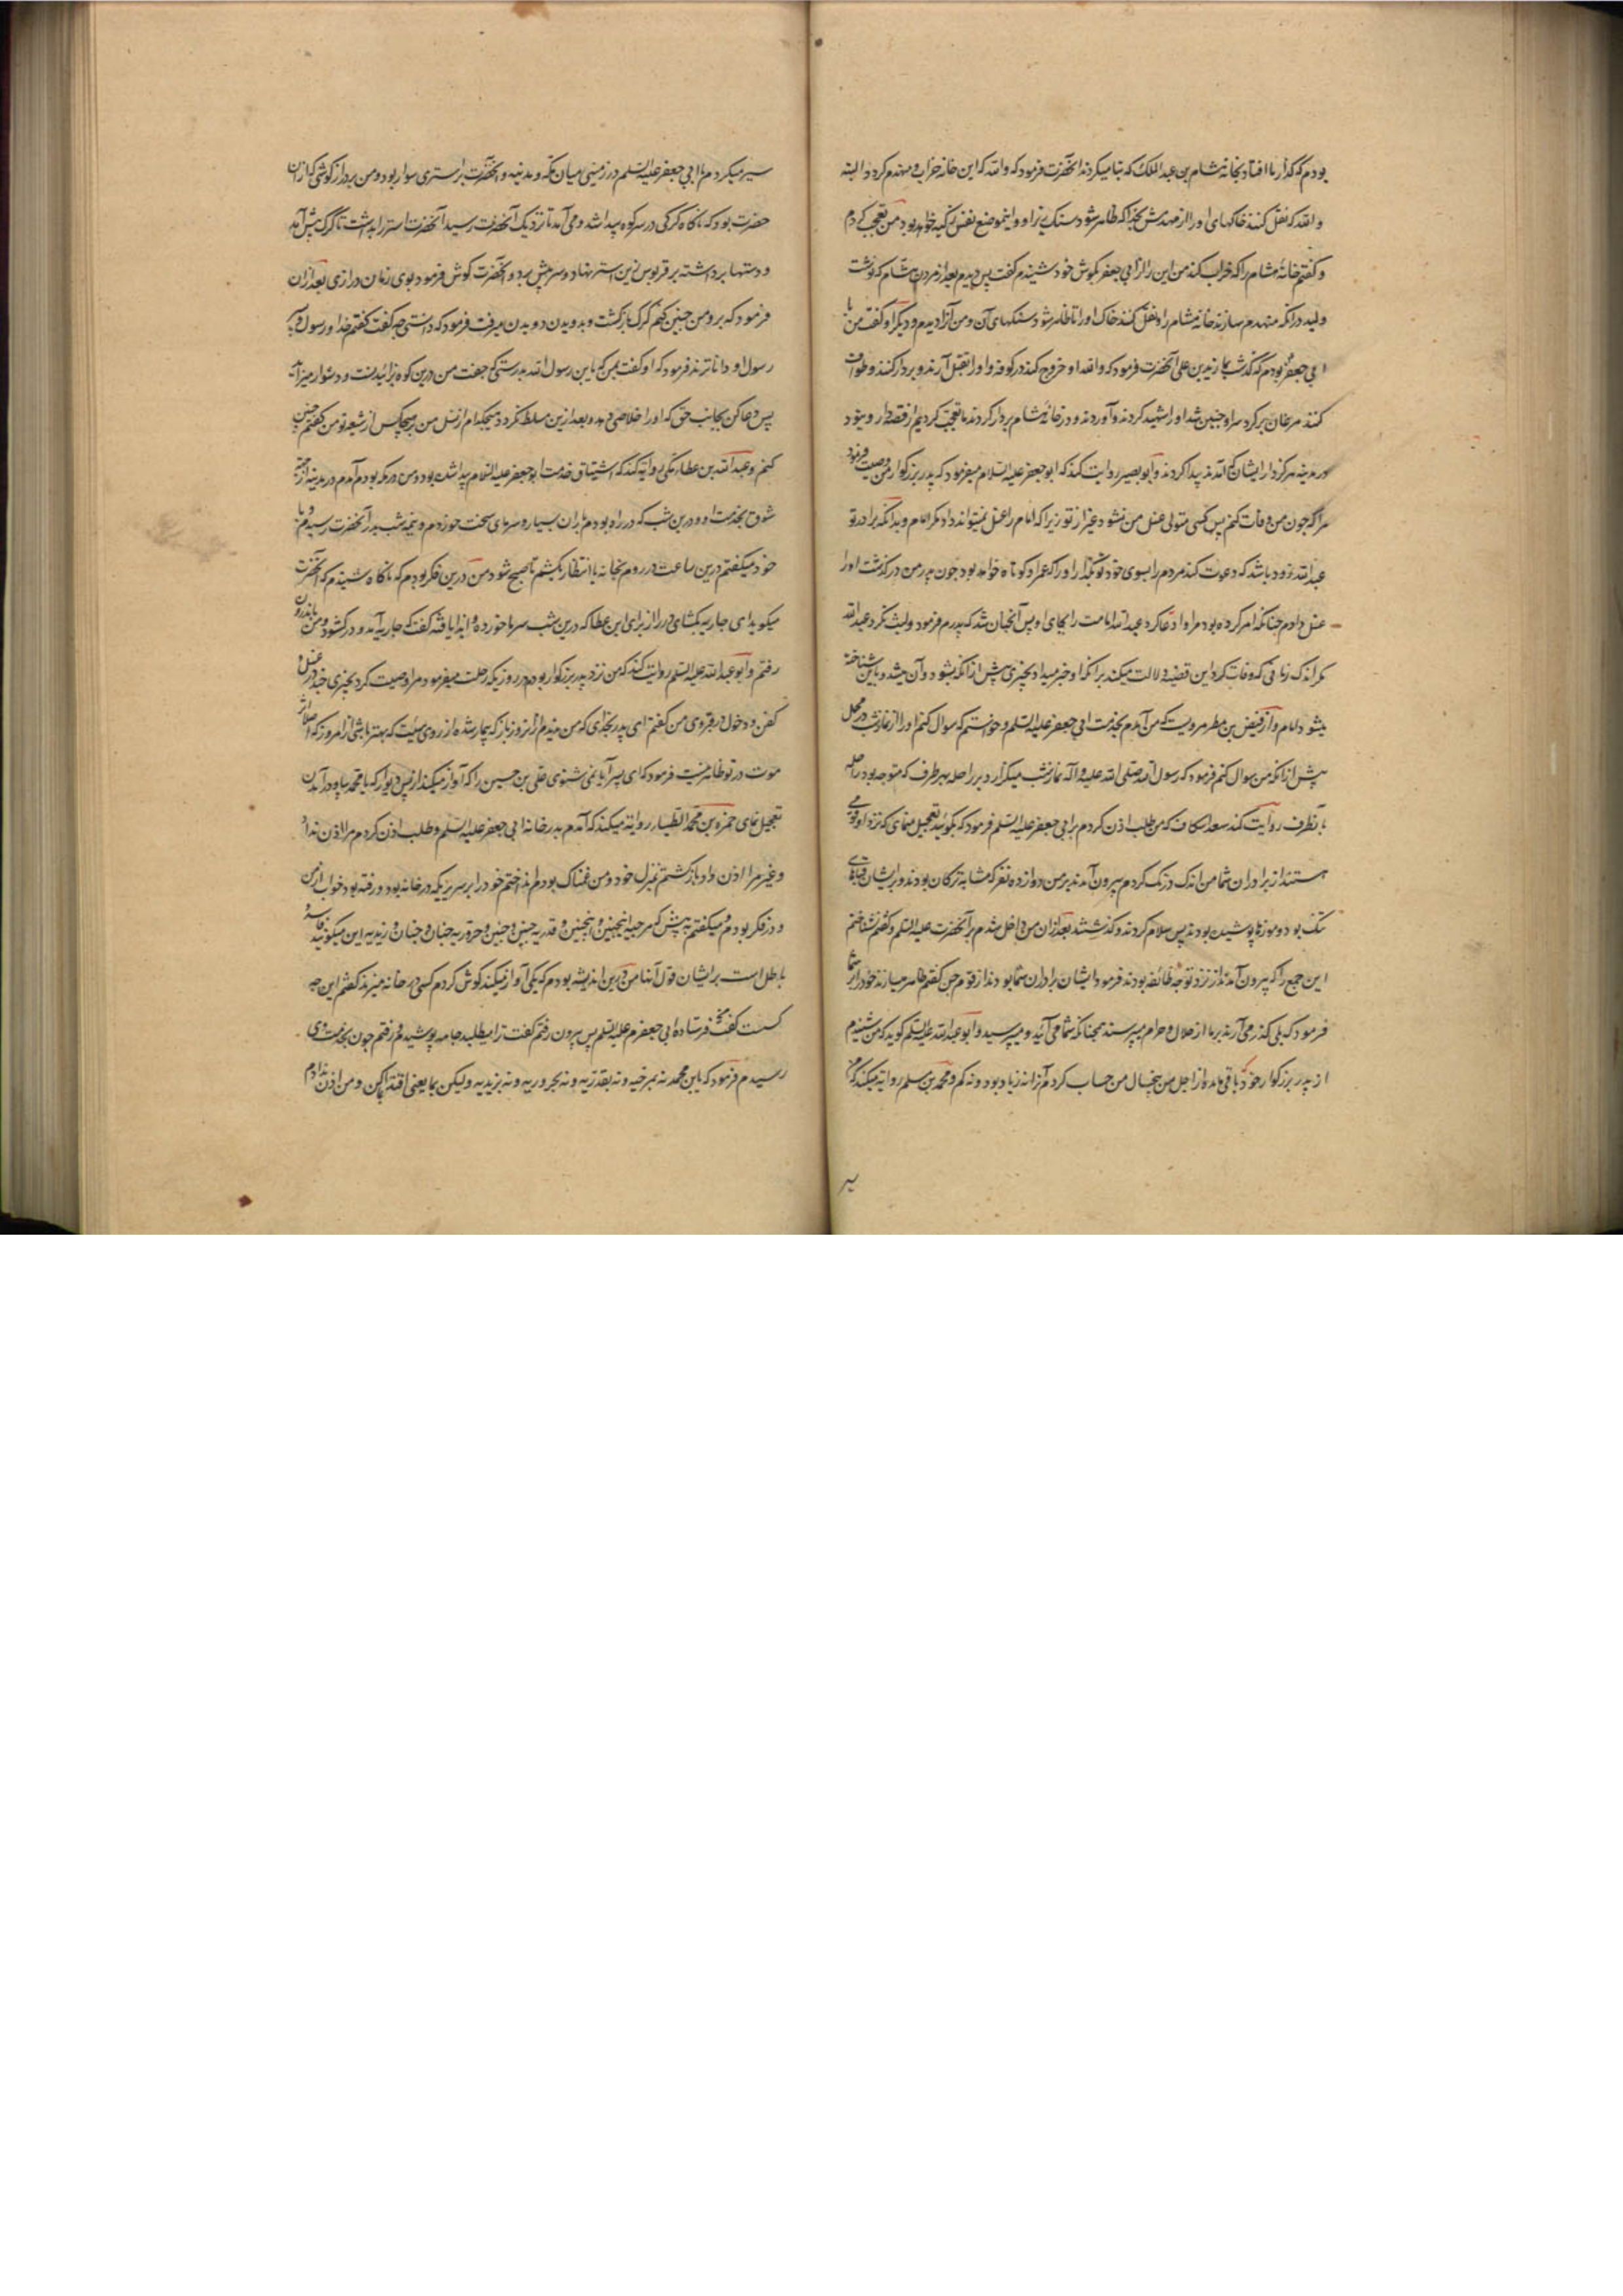 بودم که گذار ما افتاد بخانه هشام بن عبدالملک که بنا میکردند آنحضرت فرمود که والله که این خانه خراب و منهدم گردد والبته
والله که نقل کنند خاکهای او را از مهدمش بخدا که ظاهر شود سنگ و این موضع نفس زکیه خواهد بود من تعجب کردم
و گفتم خانهٔ هشام را که خراب کند من این را از ابی جعفر بگوش خود شنیدم گفت پس دیدم بعد از مردن هشام که نوشت
ولید در آنکه منهدم سازند خانه هشام را و نقل کنند خاک او را تا ظاهر شود سنگهای آن و من آنرا دیدم و دیگر او گفت من با
ابی جعفر بودم که گذشت بما زید بن علی آنحضرت فرمود که والله او خروج کند در کوفه و او را بقتل آرند و بر دار کنند و طواف
کنند سر او چنین شد او را شهید کردند و آوردند و در خانهٔ هشام بر دار کردند ما تعجب کردیم از قصه دار و نبود
در مدینه هرگز دار ایشان پیدا کردند و ابو بصیر روایت کند که ابو جعفر علیه السلام میفرمود که پدر بزرگوار من وصیت فرمود
مرا که چون من وفات کنم پس کسی متولی غسل من نشود غیر از تو زیرا که امام را غسل نمیتواند داد مگر امام و بدانکه برادر تو
عبدالله زود باشد که دعوت کند مردم را بسوی خود تو بگذار او را که عمر او کوتاه خواهد بود چون پدر من در گذشت او را
غسل دادم چنانکه امر کرده بود مرا و ادعا کرد عبدالله امامت را بجای او پس آنچنان شد که پدرم فرمود و لبث نکرد عبدالله
مگر اندک زمانی که وفات کرد و این قضیه دلالت میکند بر آنکه او خبر میداد بچیزی پیش از آنکه بشود و آن میشد و باین شناخته
میشود امام و از فیض بن مطر مرویست که من آمدم بخدمت ابی جعفر علیه السلم و خواستم که سوال کنم او را از نماز شب در محمل
پیش از آنکه من سوال کنم فرمود که رسول الله صلی الله علیه و آله نماز شب میگزارد بر راحله بهر طرف که متوجه بود راحله
بآنطرف روایت کند سعد اسکاف که من طلب اذن کردم بر ابی جعفر علیه السلم فرمود که بگوئید تعجیل منمای که نزد او قومی
هستند از برادران شما من اندک درنگ کردم بیرون آمدند بر من دوازده نفر که مشابه ترکان بودند و بر ایشان قباهای
تنگ بود و موزها پوشیده بودند پس سلام کردند و گذشتند بعد از آن من داخل شدم بر آنحضرت علیه السلم و گفتم نشناختم
این جمع را که بیرون آمدند از نزد تو چه طائفه بودند فرمود ایشان برادران شما بودند از قوم جن گفتم ظاهر میسازند خود را بر شما
فرمود که بلی گذر می آرند بر ما از حلال و حرام میپرسند همچنانکه شما می آئید و میپرسید و ابو عبدالله علیه السلم گوید که من شنیدم
از پدر بزرگوار خود باقی مانده از اجل من پنج سال من حساب کردم آنرا نه زیاد بود و نه کم و محمد بن سلم روایه میکند که من
سیر
سیر میکردم با ابی جعفر علیه السلم در زمینی میان مکه و مدینه و آنحضرت بر استری سوار بود و من بر درازگوشی که از آن
حضرت بود که ناگاه گرگی در سر کوه پیدا شد و می آمد تا نزدیک آنحضرت رسید آنحضرت استر را بداشت تا گرگ پیش آمد
و دستها برداشته بر قربوس زین استر نهاد و سر پیش برد و آنحضرت گوش فرمود بوی زمان درازی بعد از آن
فرمود که برو من چنین کنم گرگ بازگشت و بدویدن دویدن میرفت فرمود که دانستی چه گفت گفتم خدا و رسول و
رسول او داناترند فرمود که او گفت بمن که یابن رسول الله بدرستی که جفت من درین کوه بزائیدنست و دشوار میزاید
پس دعا کن بجانب حق که او را خلاصی دهد و بعد ازین مسلط نگرداند هیچکدام از نسل من بر هیچکس از شیعه تو من گفتم چنین
کنم و عبدالله بن عطار مکی روایه کند که اشتیاق خدمت ابو جعفر علیه السلام پیدا شد بود و من در مکه بودم آمدم در مدینه از جهته
شوق بخدمت او و درین شب که در راه بودم باران بسیار و سرمای سخت خوردم و نیمه شب بدر آنحضرت رسیدم و با
خود میگفتم درین ساعت در روم بخانه یا انتظار بکشم تا صبح شود من درین فکر بودم که ناگاه شنیدم که آنحضرت
میگوید ای جاریه بگشای در را از برای ابن عطا که درین شب سرما خورده و ایذا یافته گفت که جاریه آمد و در گشود و من باندرون
رفتم و ابو عبدالله علیه السلم روایت کند که من نزد پدر بزرگوار بودم در روزیکه رحلت میفرمود مرا وصیت کرد بچیزی چند در غسل و
کفن و دخول در قبر وی من گفتم ای پدر بخدای که من ندیدم از آنروز باز که بیمار شده از روی هیئت که بهتر باشی از امروز که اصلا اثر
موت در تو ظاهر نیست فرمود که ای پسر آیا نمی شنوی علی بن حسین را که آواز میکند از پس دیوار که یا محمد بیا و در آمدن
تعجیل نمای حمزه بن محمد الطیار روایه میکند که آمدم بدر خانه ابی جعفر علیه السلم و طلب اذن کردم مرا اذن نداد
و غیر مرا اذن داد بازگشتم بمنزل خود و من غمناک بودم انداختم خود را بر سریریکه در خانه بود و رفته بود خواب از من
و در فکر بودم و میگفتم به پیش که مرجیه اینچنین و اینچنین و قدریه چنین و چنین و حروریه چنان و چنان و زیدیه این میگوید فاسد و
باطل است بر ایشان قول آنها من درین اندیشه بودم که یکی آواز میکند گوش کردم کسی در خانه میزند گفتم این چه
کست گفت فرستاده ابی جعفرم علیه السلم پس بیرون رفتم گفت ترا میطلبد جامه پوشیدم و رفتم چون بخدمت وی
رسیدم فرمود که یابن محمد نه بمرجیه و نه بقدریه و نه بحروریه و نه بزیدیه ولیکن بما یعنی اقتدا بما کن و من اذن ندادم